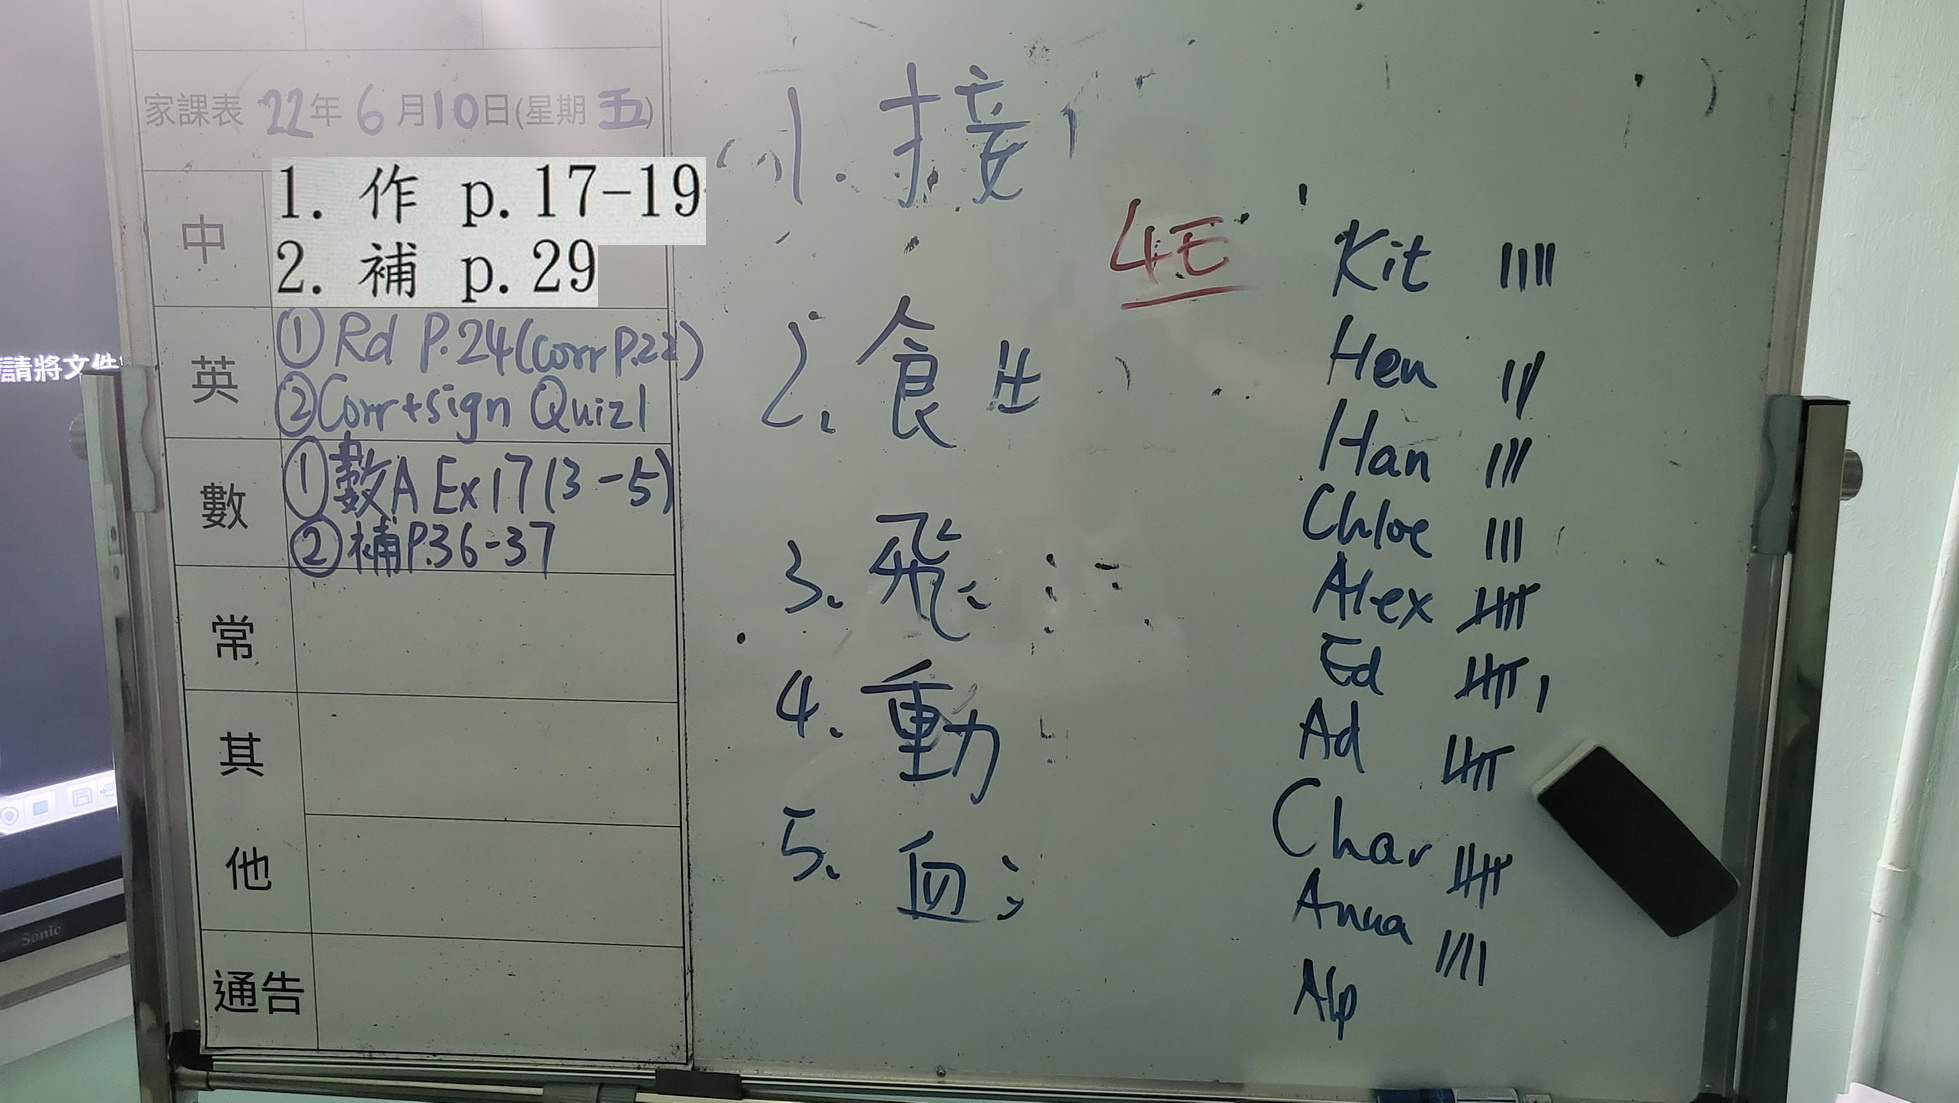 家課表 22年 6月10日(星期五)
中
1. 作 p.17-19
2. 補 p.29
英
① Rd P.24(corr P.22)
② Corr+sign Quiz 1
數
① 數A Ex17(3-5)
② 補P.36-37
常
其
他
通告
1. 接
2. 食
3. 飛
4. 動
5. 血
4E
Kit
Hen
Han
Chloe
Alex
Ed
Ad
Char
Anna
Alp
請將文件
Sonic